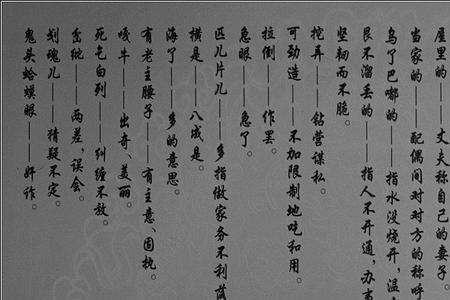 屋里的——丈夫称自己的妻子。
当家的——配偶间对对方的称呼
乌了巴嘟的——指水没烧开，温
艮不溜丢的——指人不开通，办事
坚韧而不脆。
挖弄——钻营谋私。
可劲造——不加限制地吃和用。
拉倒——作罢。
急眼——急了。
匹儿片儿——多指做家务不利落
横是——八成是。
海了——多的意思。
有老主腰子——有主意、固执。
牛——出奇、美丽。
死乞白列——纠缠不放。
岔纰——两差，误会。
划魂儿——猜疑不定。
鬼头蛤蟆眼——奸诈。